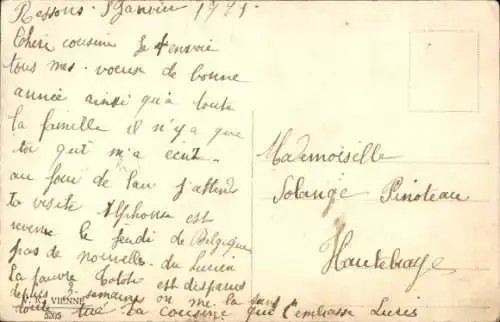 Ressons 8 Janvier 1921.
Chère cousine Je t'envoie
tous mes voeux de bonne
année ainsi qu'a toute
la famille il n'y a que
toi qui m'a écrit.
au jour de l'an j'attend
ta visite Alphonse est
revenu le jeudi de Belgique
pas de nouvelle du Lucien
la pauvre est disparue
depuis 2 semaines on me la
tué ta cousine qui t'embrasse
Mademoiselle
Solange Pinoteau
Hautebraye
VIENNE
5205